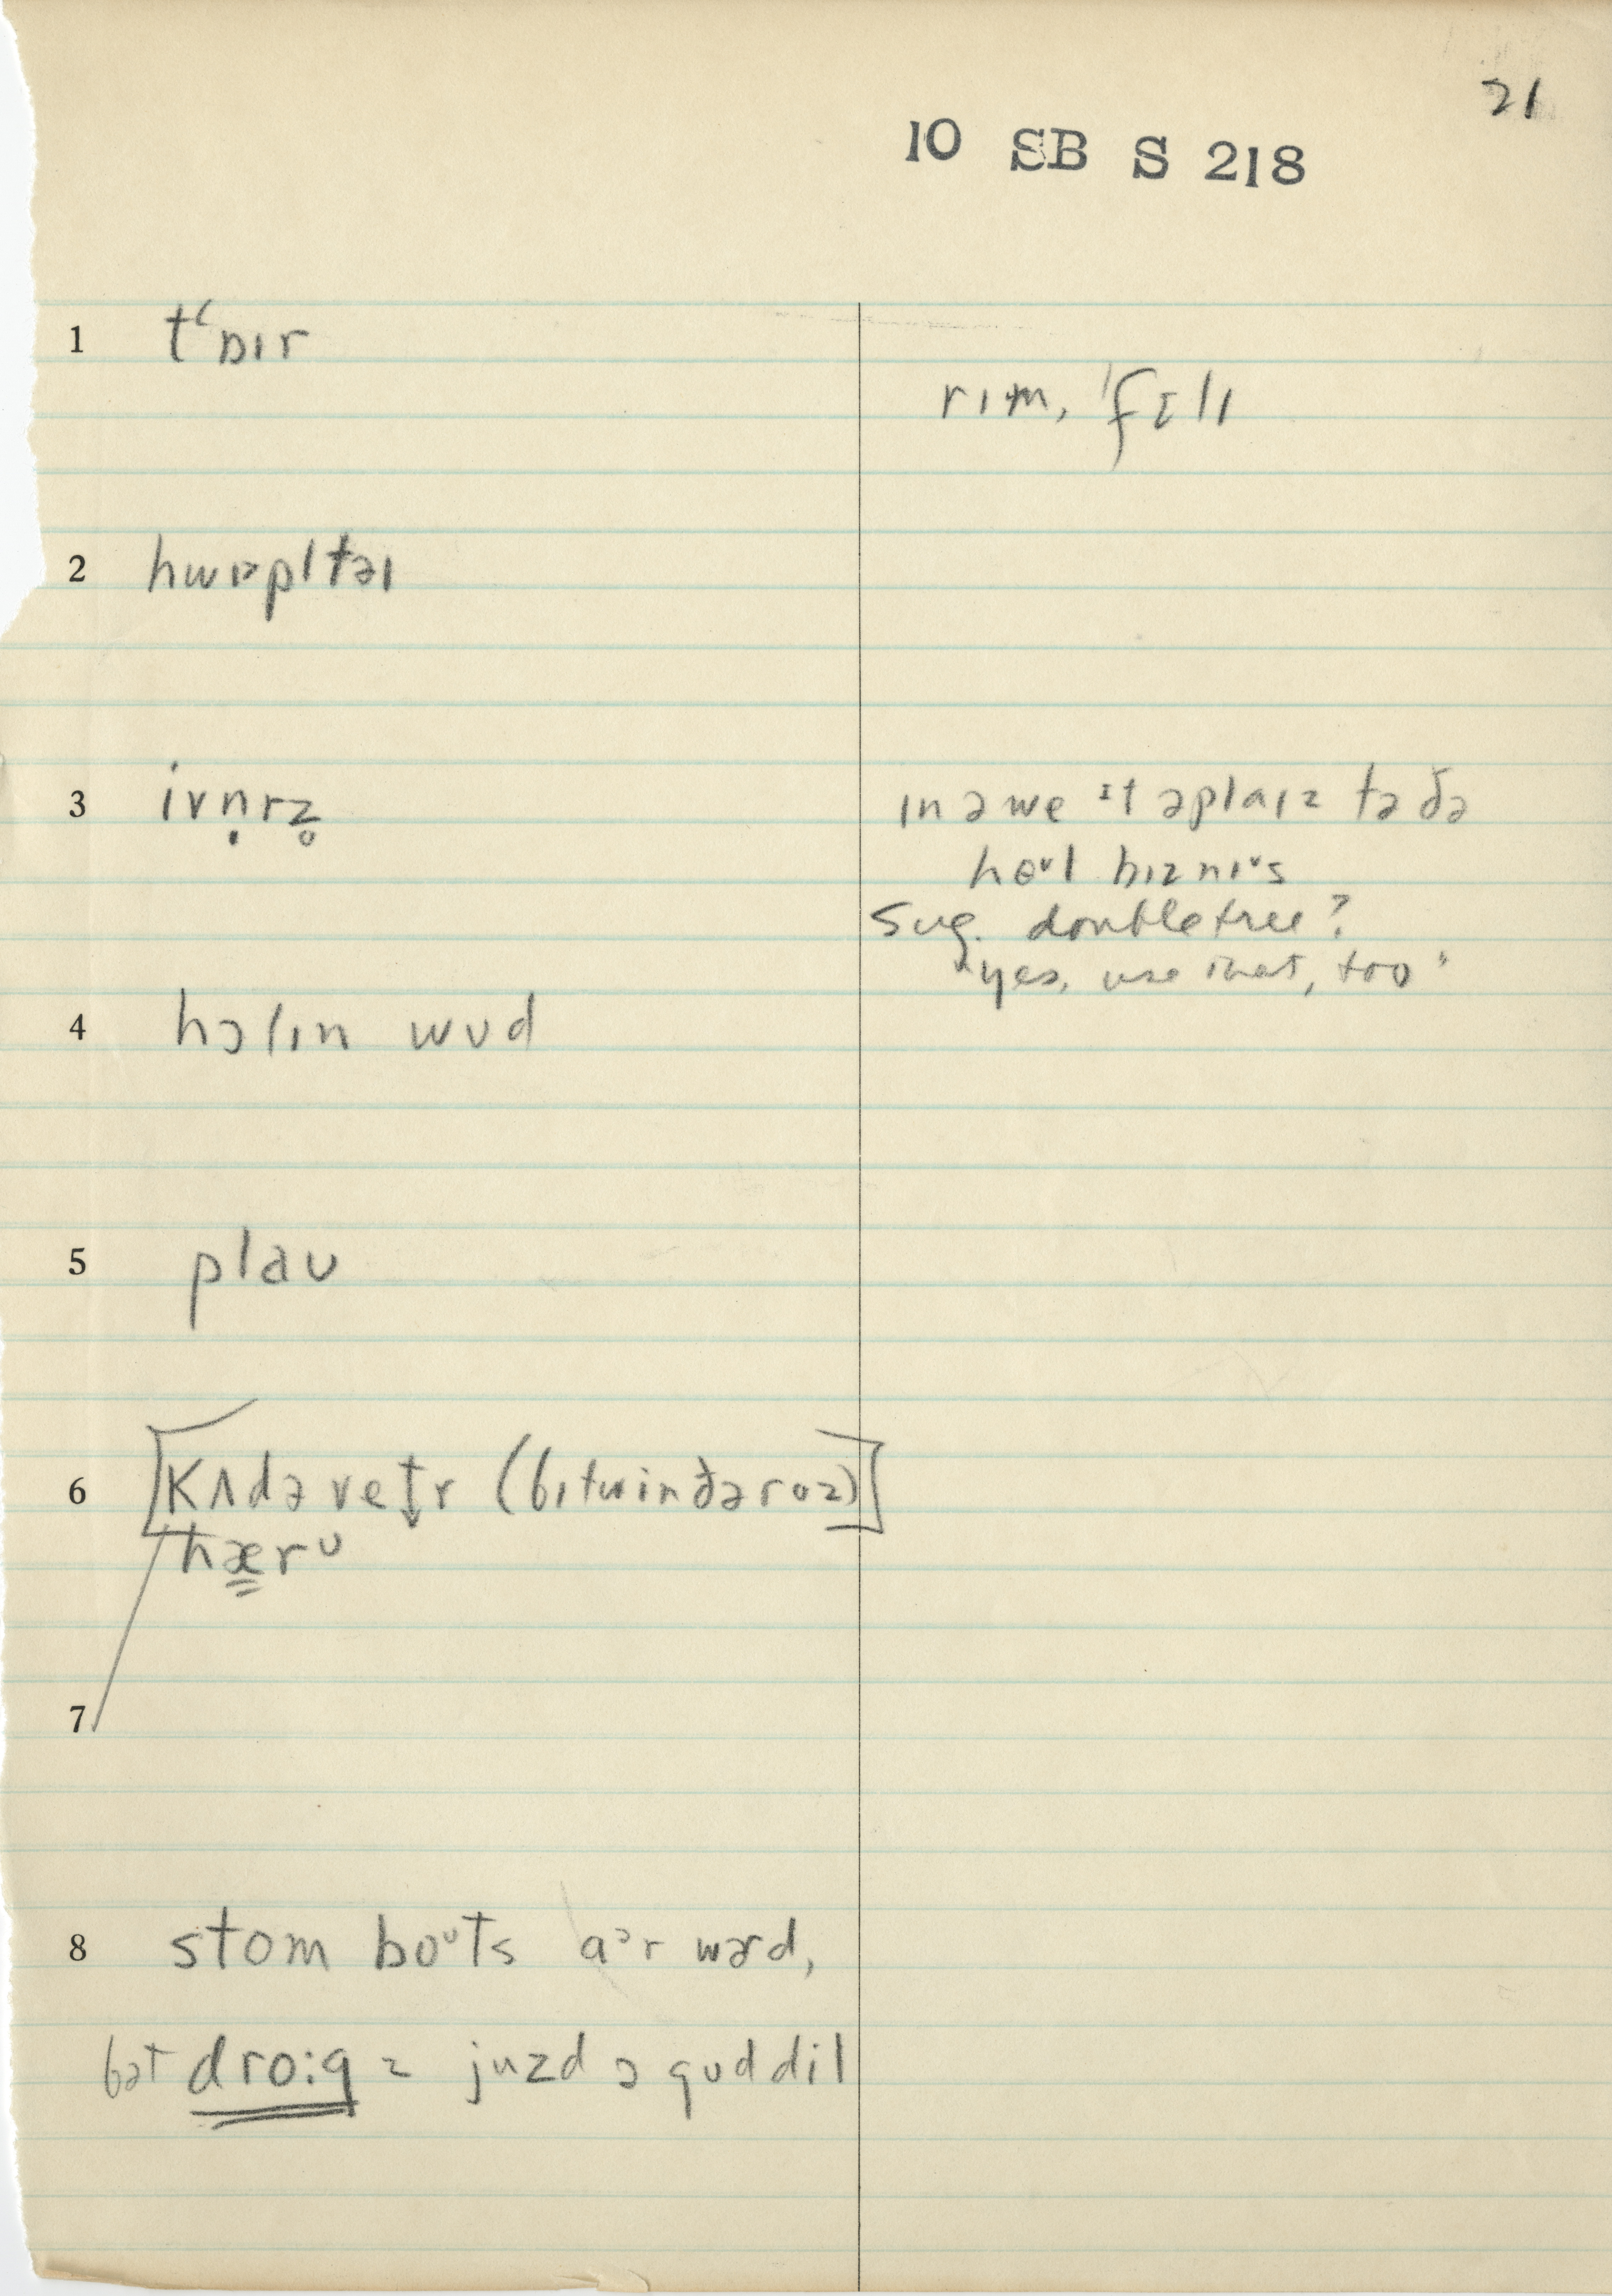 21
10 SB S 218
1 tʻɒɪr
rɪm, ˈfɛlɪ
2 hwɪəpltəɪ
3 ivṇrz̥
ɪn ə we ɪt əplaɪz tə ðə
hoᴜl bɪznɪᵛs
sug. doubletree?
"yes, use that, too"
4 hɔlɪn wʊd
5 plaʊ
6 [kʌdəvetr (bɪtwin ðə roz)]
hærᴜ
7
8 stom boᴜts aᵊr wərd,
bət droːg z juzd ə gʊd dil